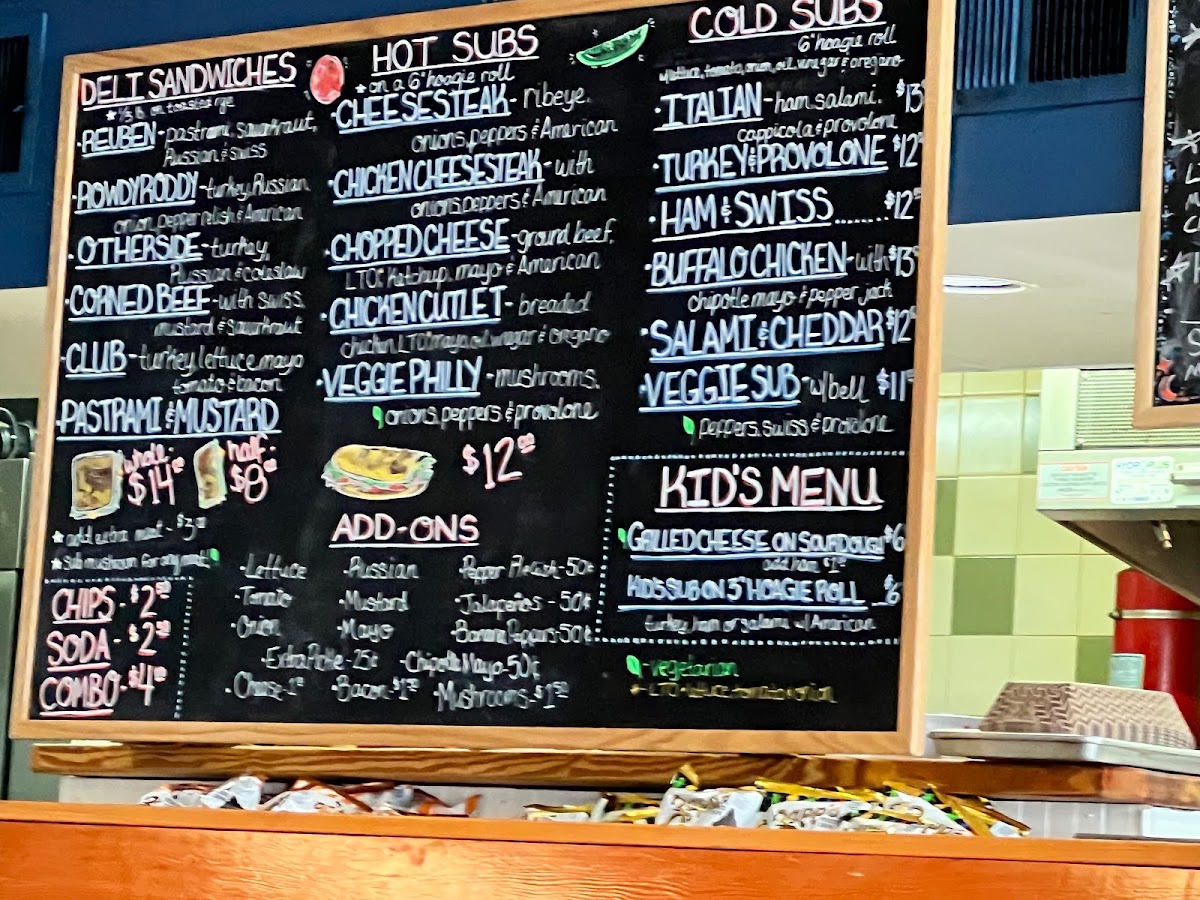 DELI SANDWICHES
* 1/3 lb. on toasted rye
• REUBEN - pastrami, sauerkraut,
Russian & swiss
• ROWDY RODDY - turkey, Russian
onion, pepper relish & American
• OTHERSIDE - turkey,
Russian & coleslaw
• CORNED BEEF - with swiss,
mustard & sauerkraut
• CLUB - turkey, lettuce, mayo
tomato & bacon
• PASTRAMI & MUSTARD
whole: $14.00
half: $8.00
* add extra meat - $3.00
* Sub mushroom for any meat
CHIPS - $2.50
SODA - $2.50
COMBO - $4.00
HOT SUBS
* on a 6" hoagie roll
• CHEESESTEAK - ribeye,
onions, peppers & American
• CHICKEN CHEESESTEAK - with
onions, peppers & American
• CHOPPED CHEESE - ground beef,
LTO, ketchup, mayo & American
• CHICKEN CUTLET - breaded
chicken, LTO, mayo, oil, vinegar & oregano
• VEGGIE PHILLY - mushrooms,
onions, peppers & provolone
$12.00
ADD-ONS
• Lettuce • Russian Pepper Relish - 50¢
• Tomato • Mustard • Jalapeños - 50¢
• Onion • Mayo • Banana Peppers - 50¢
• Extra Pickle - 25¢ • Chipotle Mayo - 50¢
• Cheese - 1 • Bacon - $1.50 Mushrooms - $1.50
COLD SUBS
6" hoagie roll
w/lettuce, tomato, onion, oil, vinegar & oregano
• ITALIAN - ham, salami, $13
cappicola & provolone
• TURKEY & PROVOLONE $12
• HAM & SWISS ........ $12
• BUFFALO CHICKEN - with $13
chipotle mayo & pepper jack
• SALAMI & CHEDDAR $12
• VEGGIE SUB - w/bell $11
peppers, swiss & provolone
KID'S MENU
GRILLED CHEESE ON SOURDOUGH $6
add ham $1
KID'S SUB ON 3" HOAGIE ROLL
turkey, ham or salami w/ American
- vegetarian
* - LTO = lettuce tomato & onion